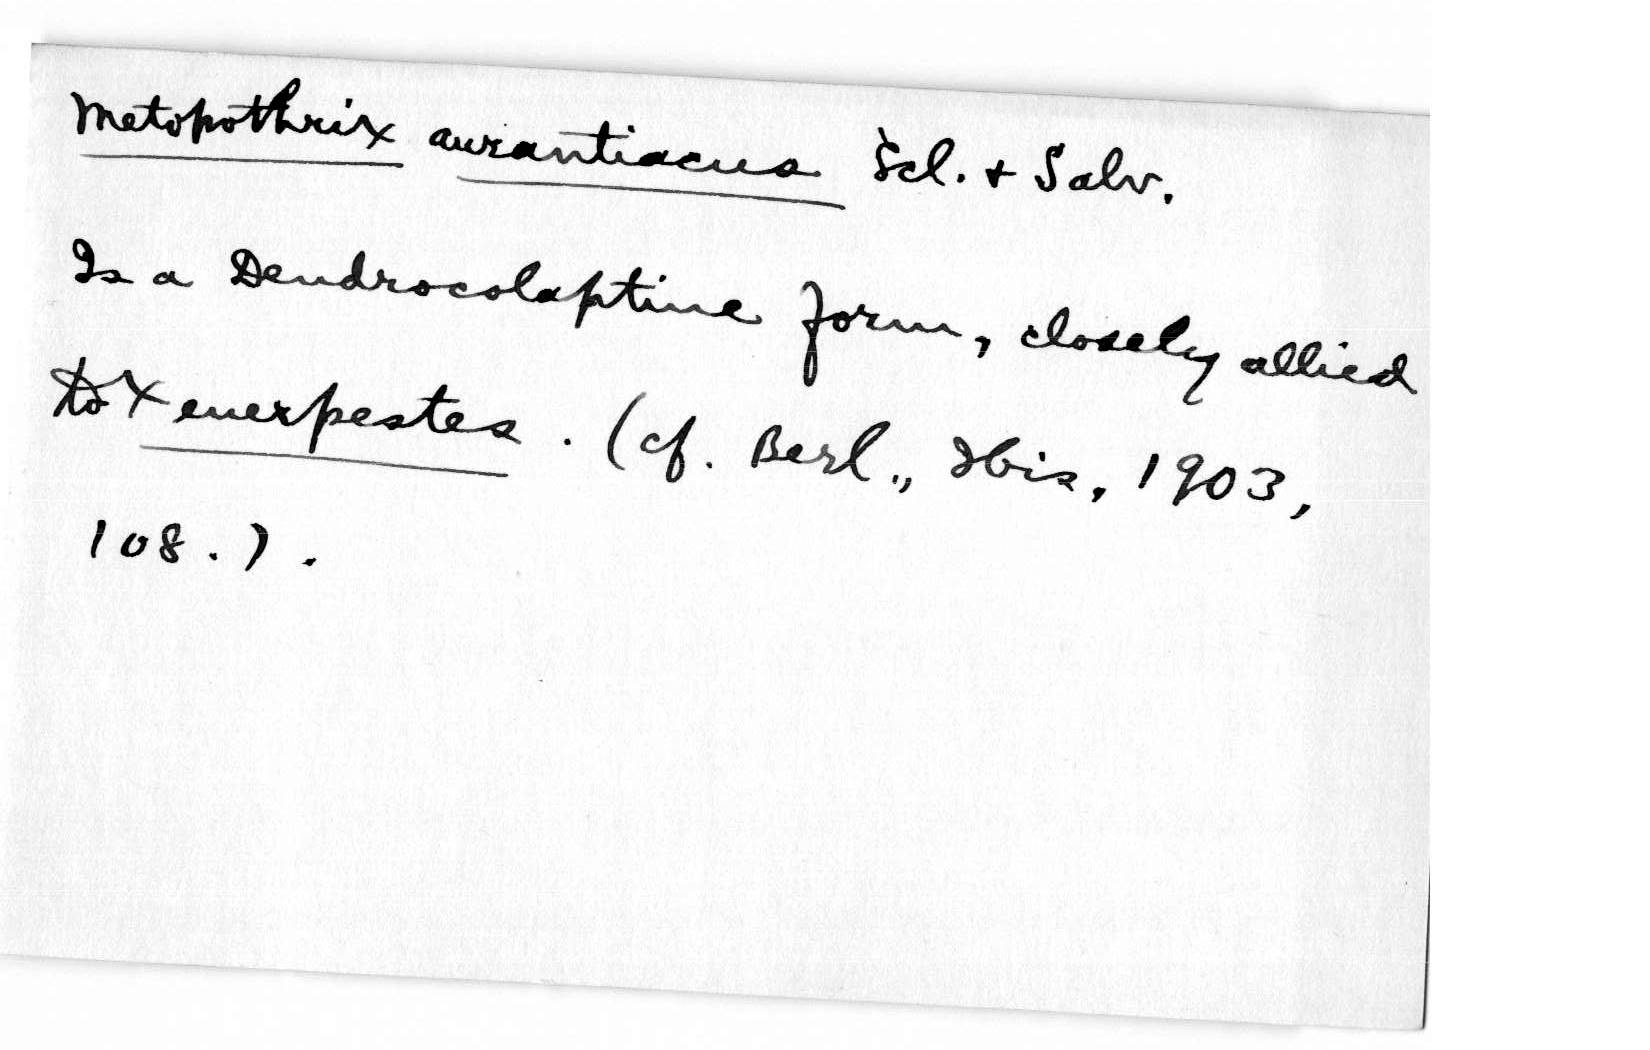 Metopothrix aurantiacus Scl. + Salv.
Is a Dendrocolaptine form, closely allied
to Xenerpestes. (cf. Berl., Ibis, 1903,
108.).